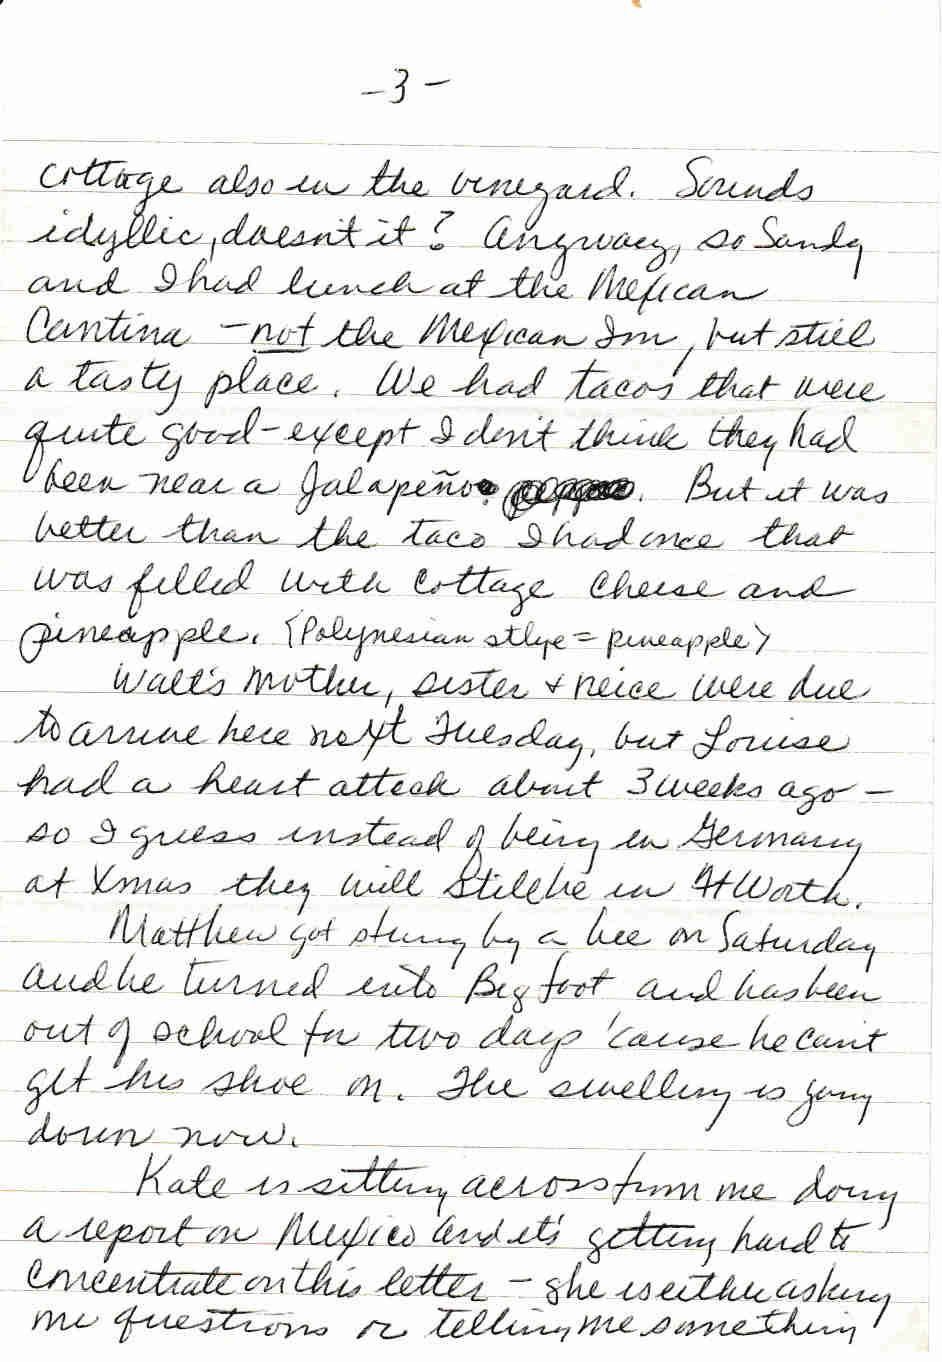 -3-
cottage also in the vineyard. Sounds
idyllic, doesn't it? Anyway, so Sandy
and I had lunch at the Mexican
Cantina - not the Mexican Inn, but still
a tasty place. We had tacos that were
quite good - except I don't think they had
been near a Jalapeño. But it was
better than the taco I had once that
was filled with cottage cheese and
pineapple. (Polynesian stlye = pineapple)
Walt's mother, sister + neice were due
to arrive here next Tuesday, but Louise
had a heart attack about 3 weeks ago -
so I guess instead of being in Germany
at Xmas they will still be in Ft Worth.
Matthew got stung by a bee on Saturday
and he turned into Big foot and has been
out of school for two days 'cause he can't
get his shoe on. The swelling is going
down now.
Kate is sitting across from me doing
a report on Mexico and it's getting hard to
concentrate on this letter - she is either asking
me questions or telling me something